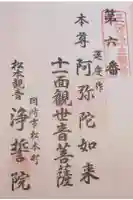 第六番
運慶作
本尊 阿弥陀如来
十一面観世音菩薩
岡崎市松本町
松本観音 浄誓院